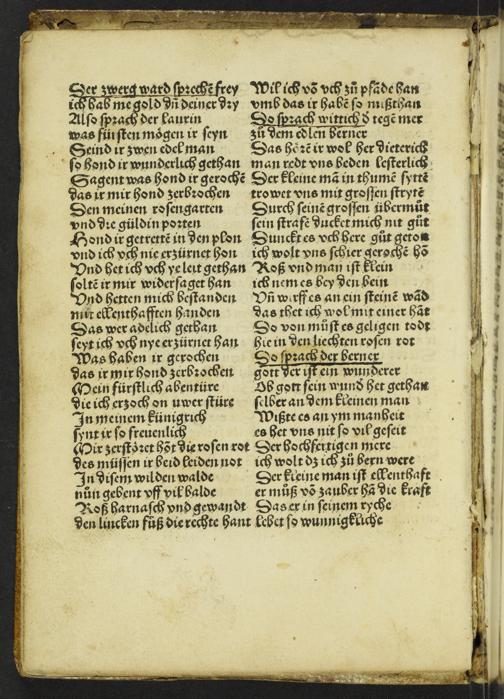 Der zwerg ward sprechē frey
ich hab me gold dñ deiner dry
Also sprach der laurin
was fürsten mögen ir seyn
Seind ir zwen edel man
so hond ir wunderlich gethan
Sagent was hond ir gerochē
das ir mir hond zerbrochen
Den meinen rosengarten
vnd die güldin porten
Hond ir getrettē in den plon
vnd ich vch nie erzürnet hon
Vnd het ich vch ye leit gethan
soltē ir mir widersaget han
Vnd hetten mich bestanden
mit ellenthafften handen
Das wer adelich gethan
seyt ich vch nye erzürnet han
Was haben ir gerochen
das ir mir hond zerbrochen
Mein fürstlich abentüre
die ich erzoch on uwer stüre
In meinem künigrich
synt ir so freuenlich
Mir zerstöret hōt die rosen rot
des müssen ir beid leiden not
In disem wilden walde
nūn gebent vff vil balde
Roß harnasch vnd gewandt
den lincken füß die rechte hant
Wil ich vō vch zū pfāde han
vmb das ir habē so mißthan
Do sprach wittich d tegē mer
zū dem edlen berner
Das hōrē ir wol her dieterich
man redt vns beden lesterlich
Der kleine mā in thumē syttē
trowet vns mit grossen strytē
Durch seinē grossen übermüt
sein strafē ducket mich nit güt
Dunckt es vch here güt geton
ich wolt vns schier gerochē hō
Roß vnd man ist klein
ich nem es bey den bein
Vñ wirff es an ein steinē wād
das thet ich wol mit einer hāt
So von müst es geligen todt
hie in den liechten rosen rot
Do sprach der berner
gott der ist ein wunderer
Ob gott sein wund het gethan
selber an dem kleinen man
Wißte es an ym manheit
es het vns nit so vil geseit
Der hochfertigen mere
ich wolt dz ich zū bern were
Der kleine man ist ellenthaft
er müß vō zauber hā die kraft
Das er in seinem ryche
lebet so wunnigkliche